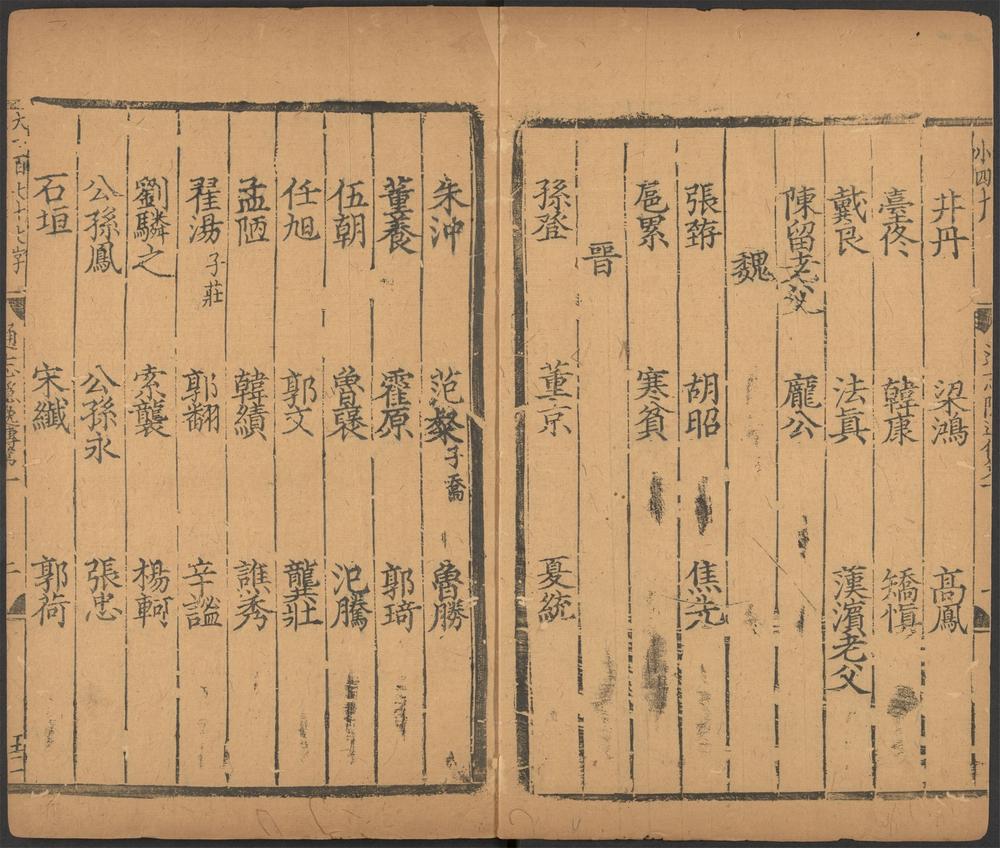 小四十
井丹 梁鴻 高鳳
臺佟 韓康 矯慎
戴良 法真 漢濱老父
陳留老父 龐公
魏
張臶 胡昭 焦先
扈累 寒貧
晉
孫登 董京 夏統
朱沖 范粲子喬 魯勝
董養 霍原 郭琦
伍朝 魯襃 氾騰
任旭 郭文 龔壯
孟陋 韓績 譙秀
翟湯子莊 郭翻 辛謐
劉驎之 索襲 楊軻
公孫鳳 公孫永 張忠
石垣 宋纖 郭荷
百七十七字 通志隱逸傳第一 二